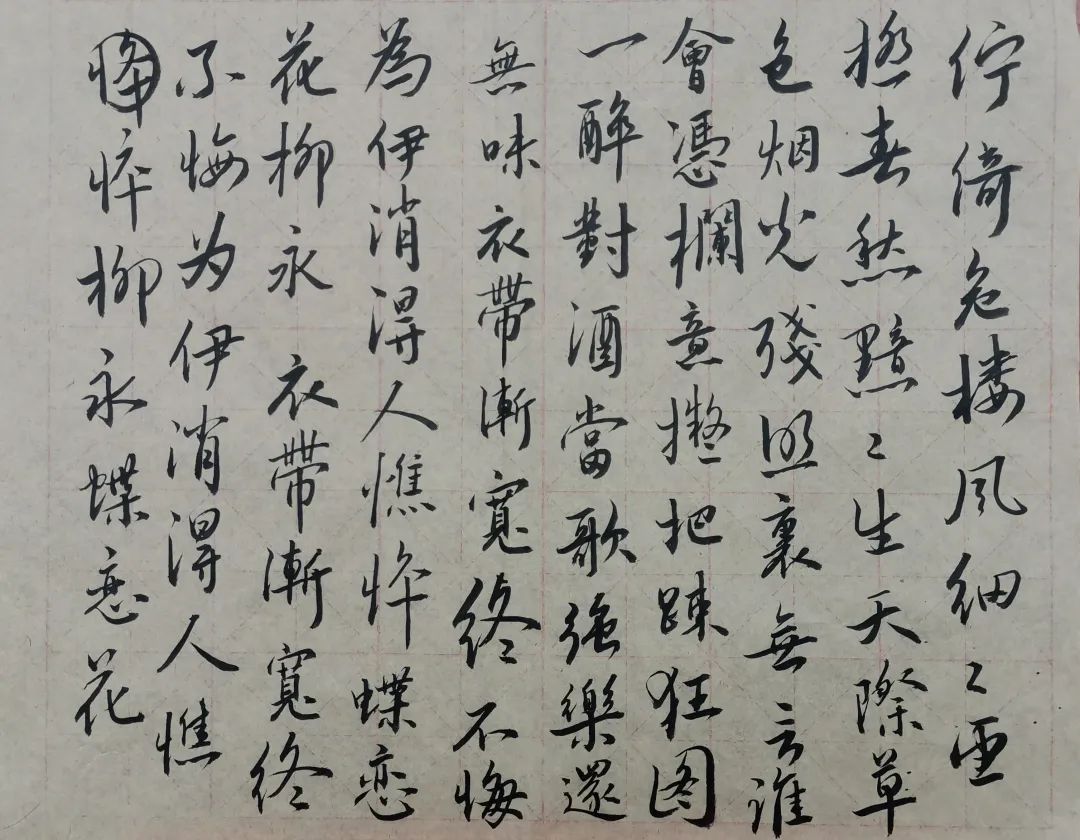 佇倚危楼风细〻望
極春愁黯〻生天際草
色烟光残照裏無言誰
會憑欄意擬把踈狂图
一醉對酒當歌强樂還
無味衣帶漸寬終不悔
為伊消得人憔悴蝶恋
花柳永 衣帶漸寬終
不悔为伊消得人憔
悴柳永蝶恋花